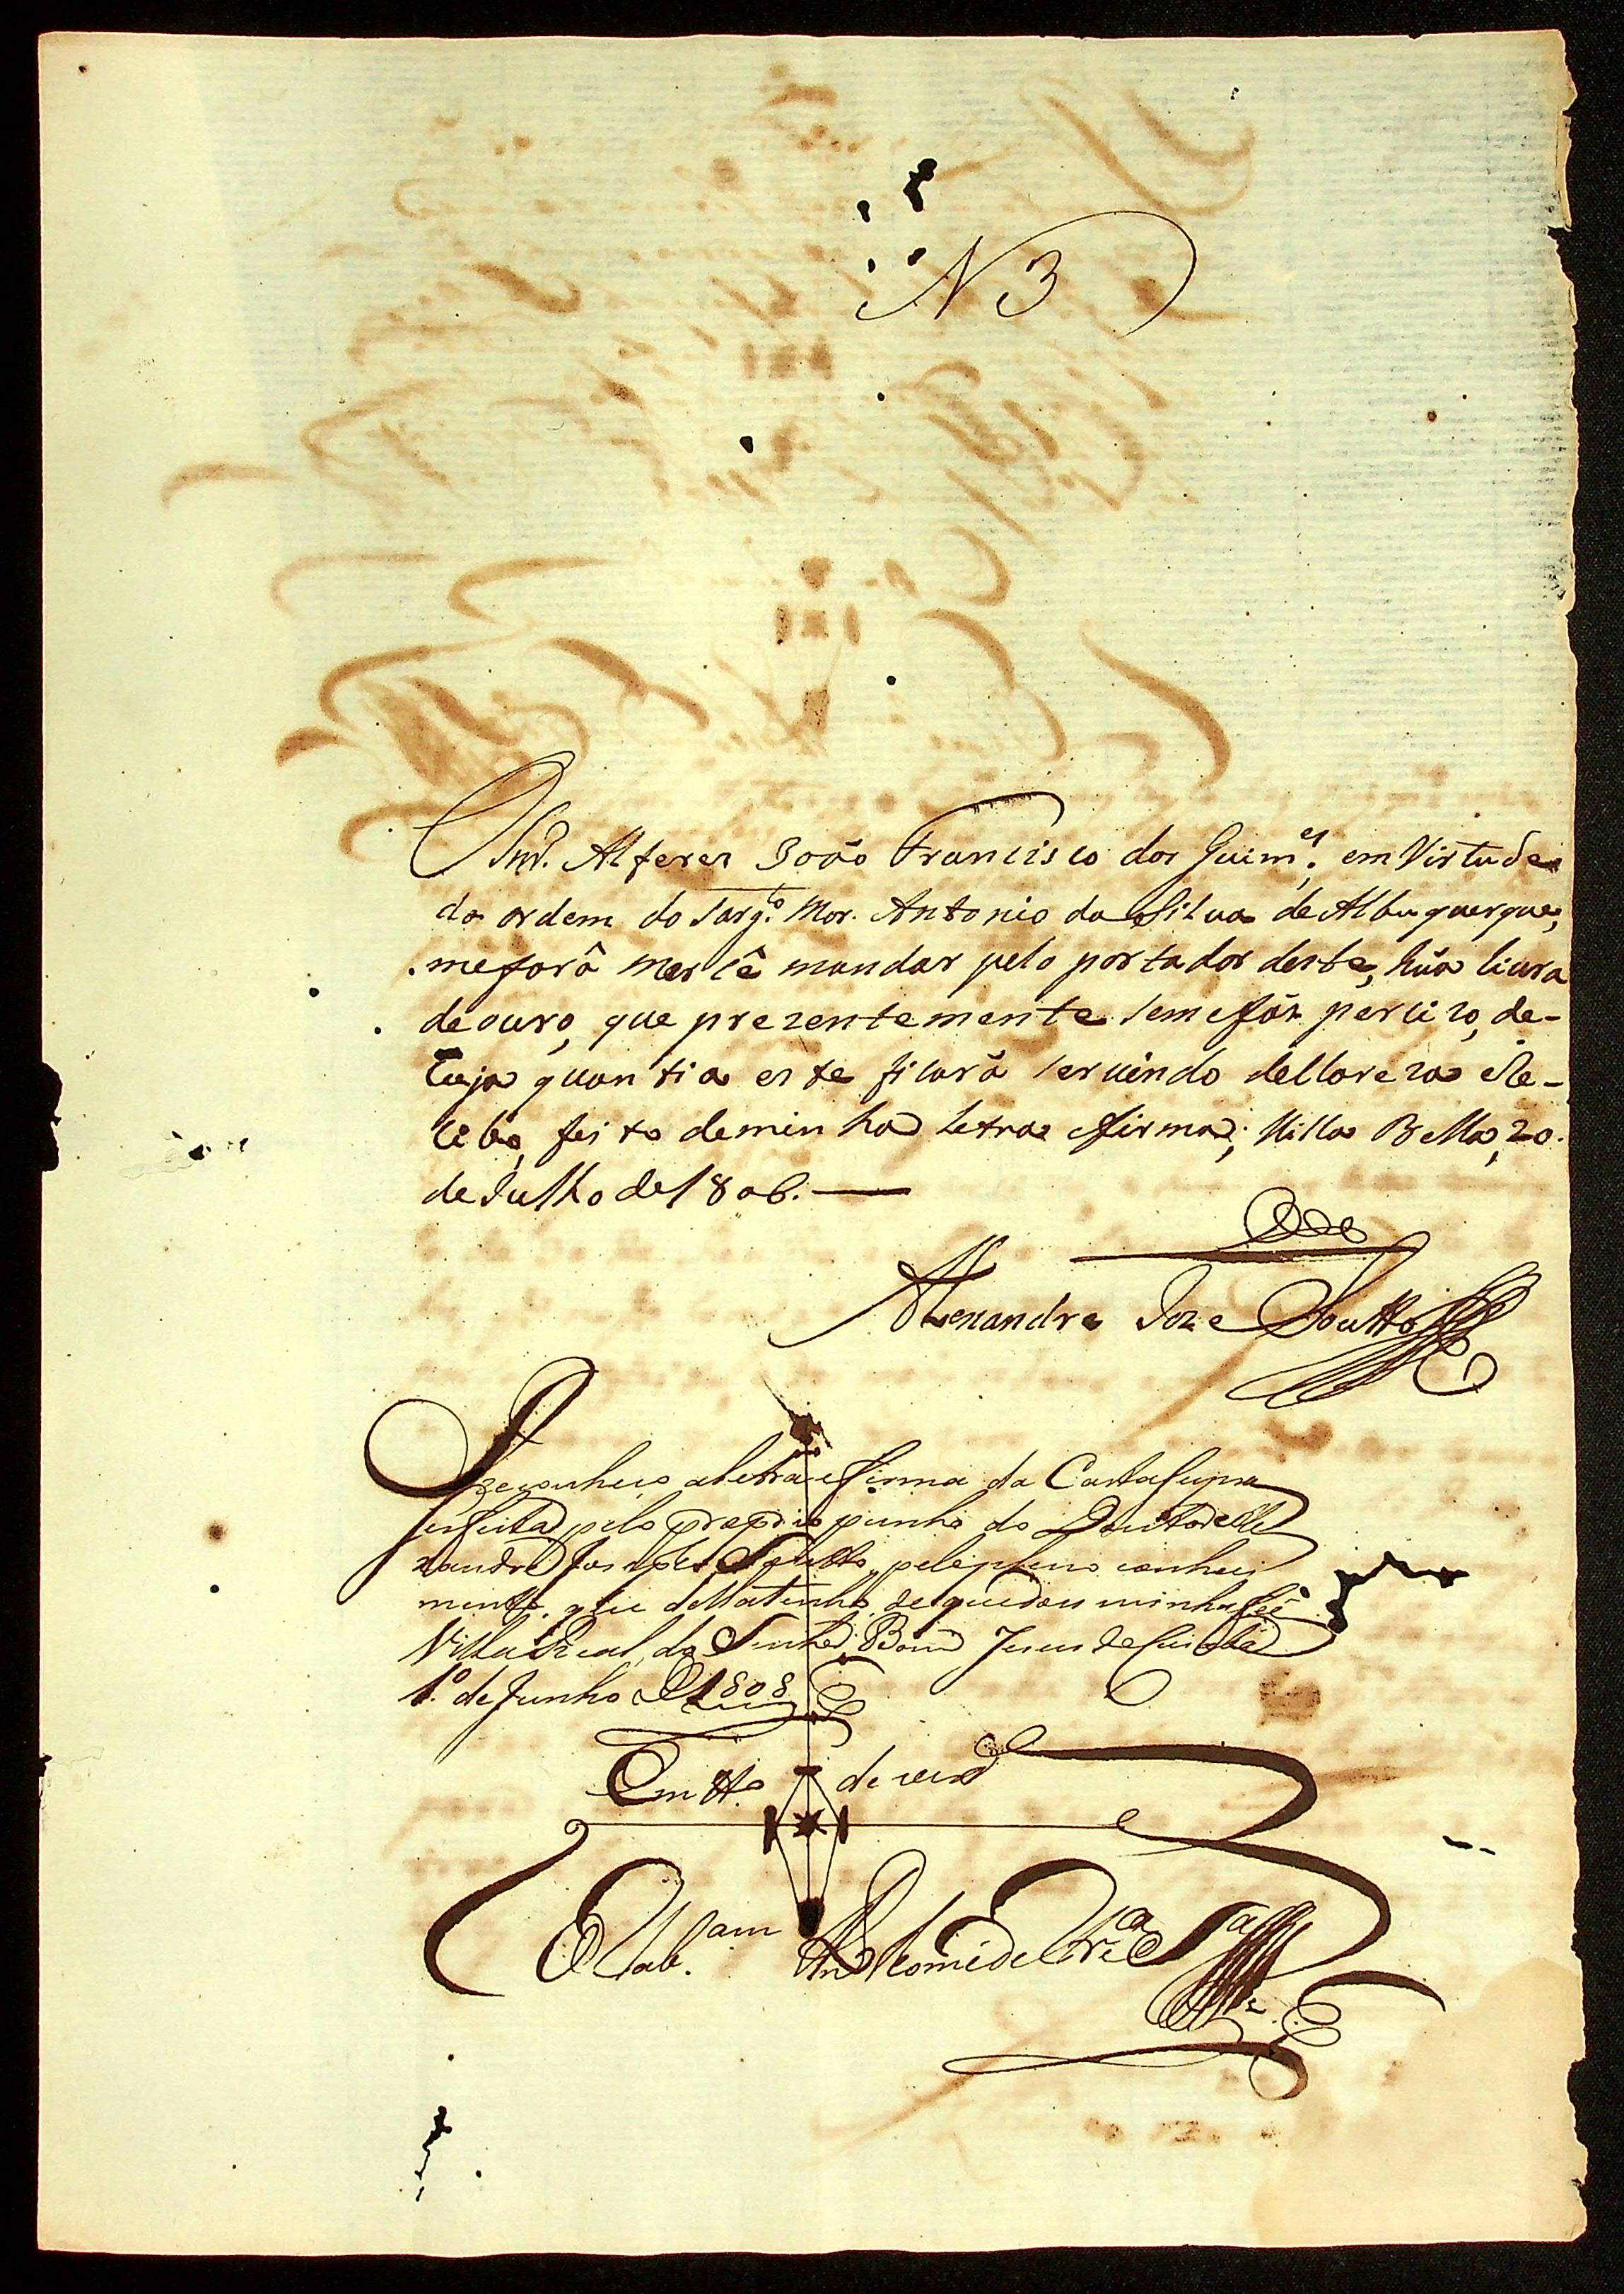 N 3
Snr. Alferes João Francisco dos Guim.es em Virtude
da ordem do Sarg.to Mor. Antonio da Silva de Albuquerque,
me fará mercê mandar pelo portador deste, hũa livra
de ouro, que prezentemente seme fáz percizo, de-
Cuja quantia este ficará servindo de Clareza e Re-
cibo, feito de minha Letra e firma; Villa Bella, 20.
de Julho de 1806.
Alexandre Joze Soutto
Reconheço a letra e firma da Carta supra
ser feita pelo proprio punho do Doutor Alle
xandre Joseph Soutto, pelo pleno conheci
mento que da Mat tenho, de que dou minha fé
Villa Real do Senhor Bom Jesus de Cuiabá
1.º de Junho de 1808
Em tt.º de verd.
O Tab.am